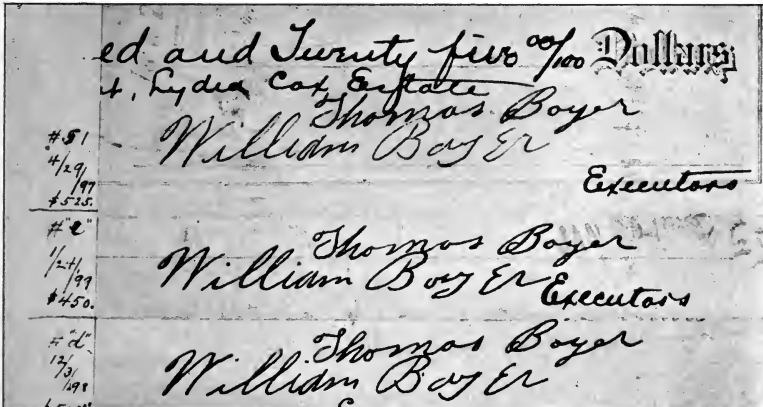 ed and Twenty five 00/100 Dollars
t, Lydia Cox, Estate
Thomas Boyer
William Boyer
Executors
#51
4/29/97
$525.
Thomas Boyer
William Boyer
Executors
#"e"
1/24/99
$450.
Thomas Boyer
William Boyer
#"d"
12/31/98